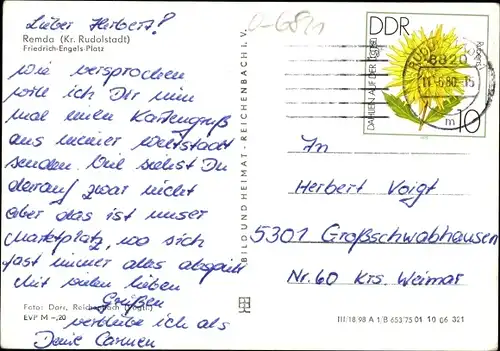 Lieber Herbert!
Remda (Kr. Rudolstadt)
Friedrich-Engels-Platz
Wie versprochen
will ich Dir nun
mal einen Kartengruß
aus meiner Weltstadt
senden. Viel siehst Du
darauf zwar nicht
aber das ist unser
Marktplatz, wo sich
fast immer alles abspielt
Mit vielen lieben
Grüßen
Foto: Darr, Reichenbach (Vogtl.)
verbleibe ich als
EVP M –,20
Deine Carmen
BILD UND HEIMAT · REICHENBACH I. V.
DDR
DAHLIEN AUF DER
6820
-6.80-15
m 10
In
Herbert Voigt
5301 Großschwabhausen
Nr. 60 Krs. Weimar
III/18/98 A 1/B 653/75 01 10 06 321